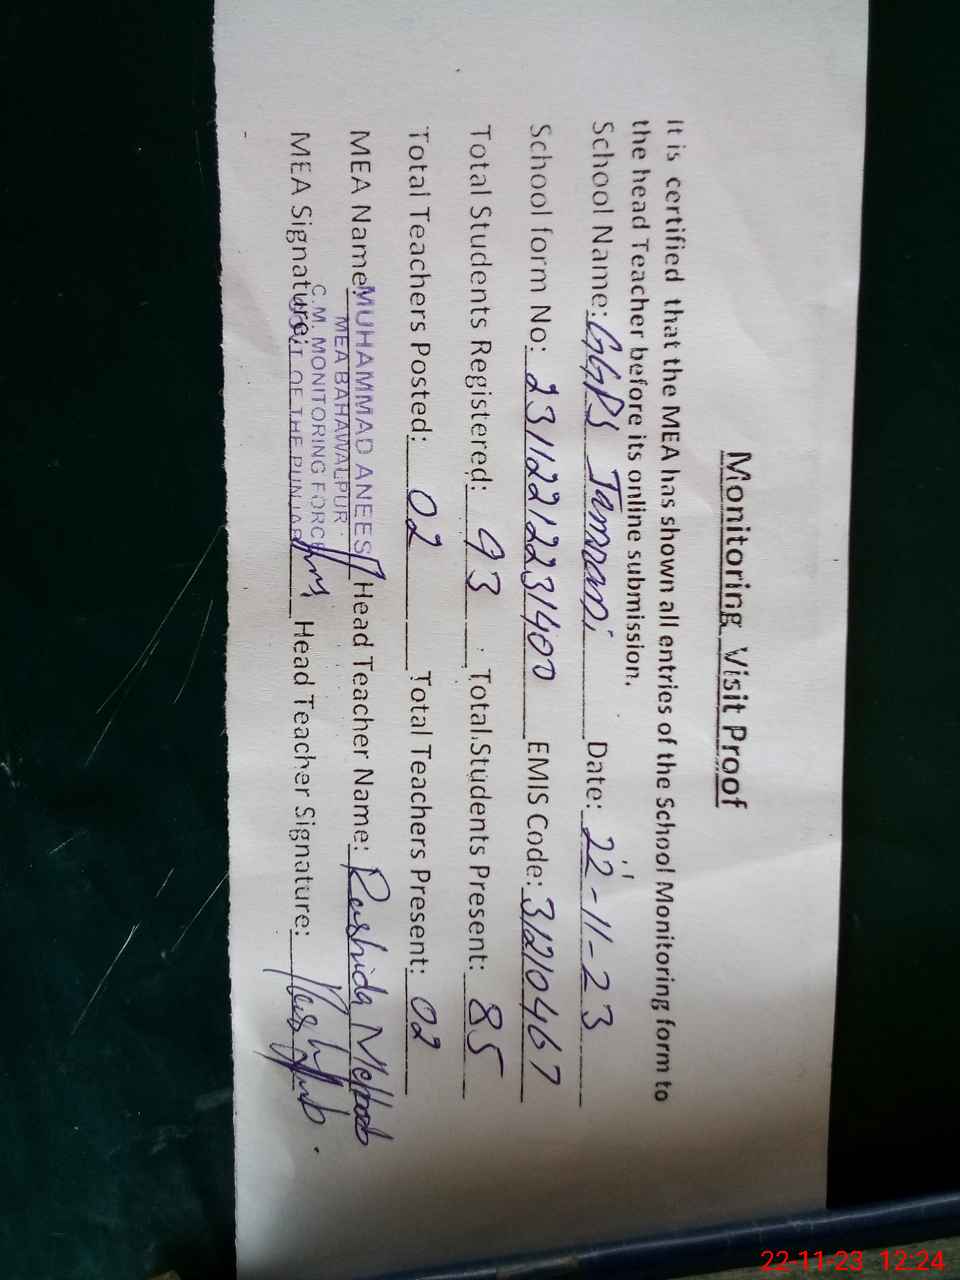 Monitoring Visit Proof
It is certified that the MEA has shown all entries of the School Monitoring form to
the head Teacher before its online submission.
School Name: GGPS Jamrani Date: 22-11-23
School form No: 23112212231400 EMIS Code: 31210467
Total Students Registered: 93 Total Students Present: 85
Total Teachers Posted: 02 Total Teachers Present: 02
MEA Name: MUHAMMAD ANEES Head Teacher Name: Rashida Mehboob
MEA BAHAWALPUR
C.M. MONITORING FORCE
MEA Signature: OF THE PUNJAB Head Teacher Signature:
22-11-23 12:24